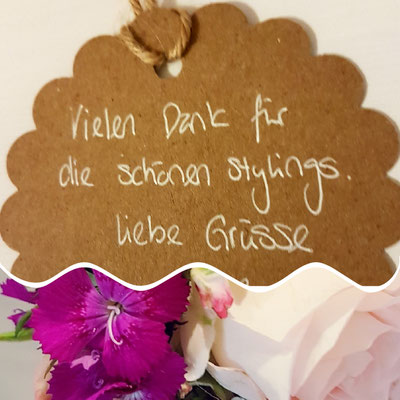 Vielen Dank für
die schönen Stylings.
liebe Grüsse